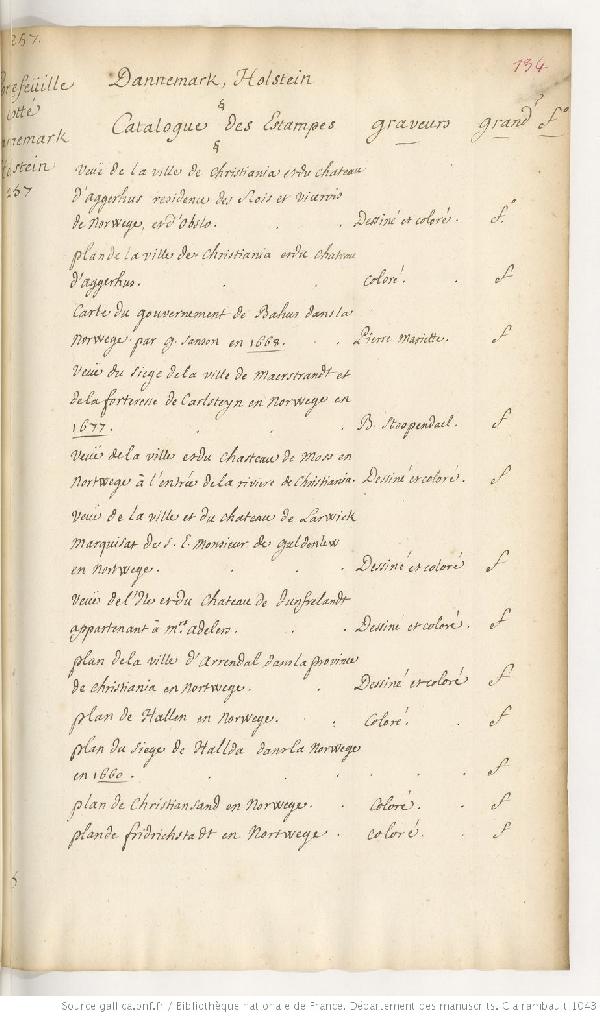 257.
134
Dannemark, Holstein
Catalogue des Estampes graveurs grand.r f.o
257
Veüe de la ville de Christiania et du chateau
d'aggerhus residence des Rois et vicerois
de Norwege, et d'Obslo. Dessiné et coloré. f.o
plan de la ville de Christiania et du chateau
d'aggerhus. coloré. f
Carte du gouvernement de Bahus dans la
Norwege par G. Sanson en 1668. Pierre Mariette. f
Veüe du siege de la ville de Maerstrandt et
de la forteresse de Carlsteyn en Norwege en
1677. B. Stoopendael. f
Veüe de la ville et du chasteau de Moss en
Nortwege à l'entrée de la riviere de Christiania. Dessiné et coloré. f
Veüe de la ville et du chateau de Larwick
Marquisat de S. E. Monsieur de guldenlew
en Nortwege. Dessiné et coloré f
Veüe de l'Isle et du Chateau de
appartenant à mrs adelers. Dessine et coloré. f
plan de la ville d'Arrendal dans la province
de Christiania en Nortwege. Dessiné et coloré f
plan de Hallen en Norwege. Coloré. f
plan du siege de Hallda dans la Norwege
en 1660. f
plan de Christiansand en Norwege. Coloré. f
plan de fridrichstadt en Nortwege. coloré. f
Source gallica.bnf.fr / Bibliothèque nationale de France. Département des manuscrits. Clairambault 1043